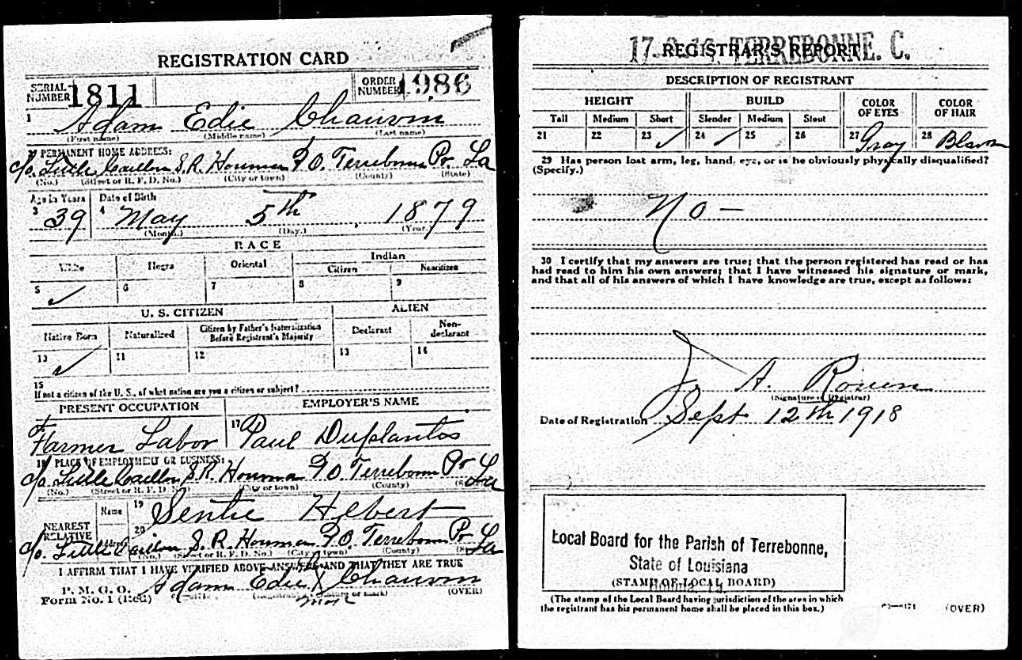 REGISTRATION CARD
SERIAL NUMBER 1811 ORDER NUMBER 1986
1 Adam Edie Chauvin
(First name) (Middle name) (Last name)
PERMANENT HOME ADDRESS:
c/o Little Caillou S.R. Houma P.O. Terrebonne Pr. La
(No.) (Street or R. F. D. No.) (City or town) (County) (State)
Age in Years Date of Birth
3 39 4 May 5th 1879
(Month.) (Day.) (Year.)
RACE
White Negro Oriental Indian
Citizen Noncitizen
5 ✓ 6 7 8 9
U. S. CITIZEN ALIEN
Native Born Naturalized Citizen by Father's Naturalization Before Registrant's Majority Declarant Non-declarant
10 ✓ 11 12 13 14
15
If not a citizen of the U. S., of what nation are you a citizen or subject?
PRESENT OCCUPATION EMPLOYER'S NAME
Farmer Labor 17 Paul Duplantos
18 PLACE OF EMPLOYMENT OR BUSINESS:
c/o Little Caillou S.R. Houma P.O. Terrebonne Pr La
(No.) (Street or R. F. D. No.) (City or town) (County)
NEAREST RELATIVE Name 19 Sentie Hebert
Address 20
c/o. Little Caillou S. R. Houma P.O. Terrebonne Pr La
(No.) (Street or R. F. D. No.) (City or town) (County)
I AFFIRM THAT I HAVE VERIFIED ABOVE ANSWERS AND THAT THEY ARE TRUE
P. M. G. O.
Form No. 1 (Red) Adam Edie X Chauvin
(Registrant's signature or mark) (OVER)
17-2-16. TERREBONNE. C.
REGISTRAR'S REPORT
DESCRIPTION OF REGISTRANT
HEIGHT BUILD COLOR OF EYES COLOR OF HAIR
Tall Medium Short Slender Medium Stout
21 22 23 ✓ 24 ✓ 25 26 27 Gray 28
29 Has person lost arm, leg, hand, eye, or is he obviously physically disqualified?
(Specify.)
No —
30 I certify that my answers are true; that the person registered has read or has
had read to him his own answers; that I have witnessed his signature or mark,
and that all of his answers of which I have knowledge are true, except as follows:
A.
(Signature of Registrar)
Date of Registration Sept 12th 1918
Local Board for the Parish of Terrebonne,
State of Louisiana
(STAMP OF LOCAL BOARD)
Houma, La.
(The stamp of the Local Board having jurisdiction of the area in which
the registrant has his permanent home shall be placed in this box.)
(OVER)